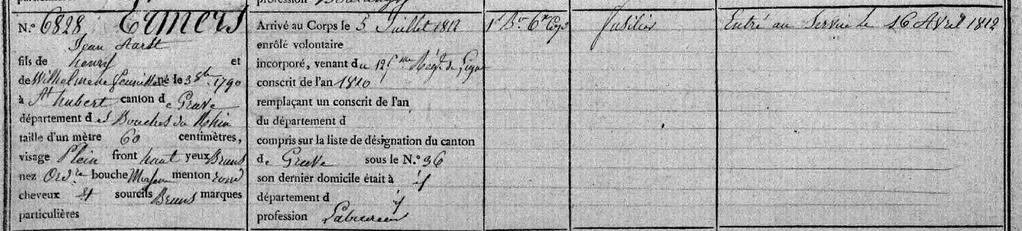 particulières
profession
N.° 6828 Timers
Jean
fils de henry et
de Wilhelmene né le 3 8bre 1790
à St hubert canton de Grave
département des Bouches du Rhin
taille d'un mètre 60 centimètres,
visage Plein front haut yeux Bruns
nez Ordre bouche Moyenne menton rond
cheveux et sourcils Bruns marques
particulières
Arrivé au Corps le 5 Juillet 1812
enrôlé volontaire
incorporé, venant du Régt de Ligne
conscrit de l'an 1810
remplaçant un conscrit de l'an
du département d
compris sur la liste de désignation du canton
de Grave sous le N.° 36
son dernier domicile était à
département d
profession Laboureur
1er Bon 6e Cie
fusilier
Entré au Service le 16 Avril 1812